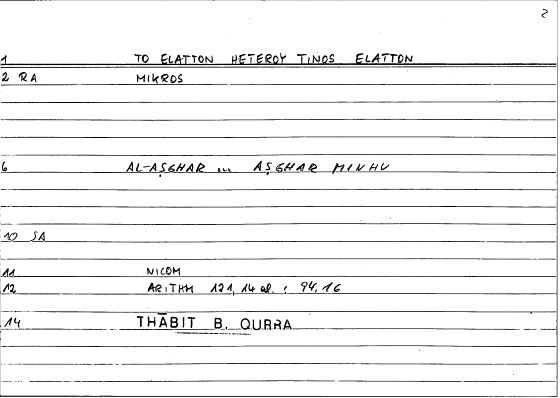 2
1 TO ELATTON HETEROY TINOS ELATTON
2 RA MIKROS
6 AL-AṢGHAR ... AṢGHAR MINHU
10 SA
11 NICOM
12 ARITHM 121, 14 al. : 94.16
14 THĀBIT B. QURRA